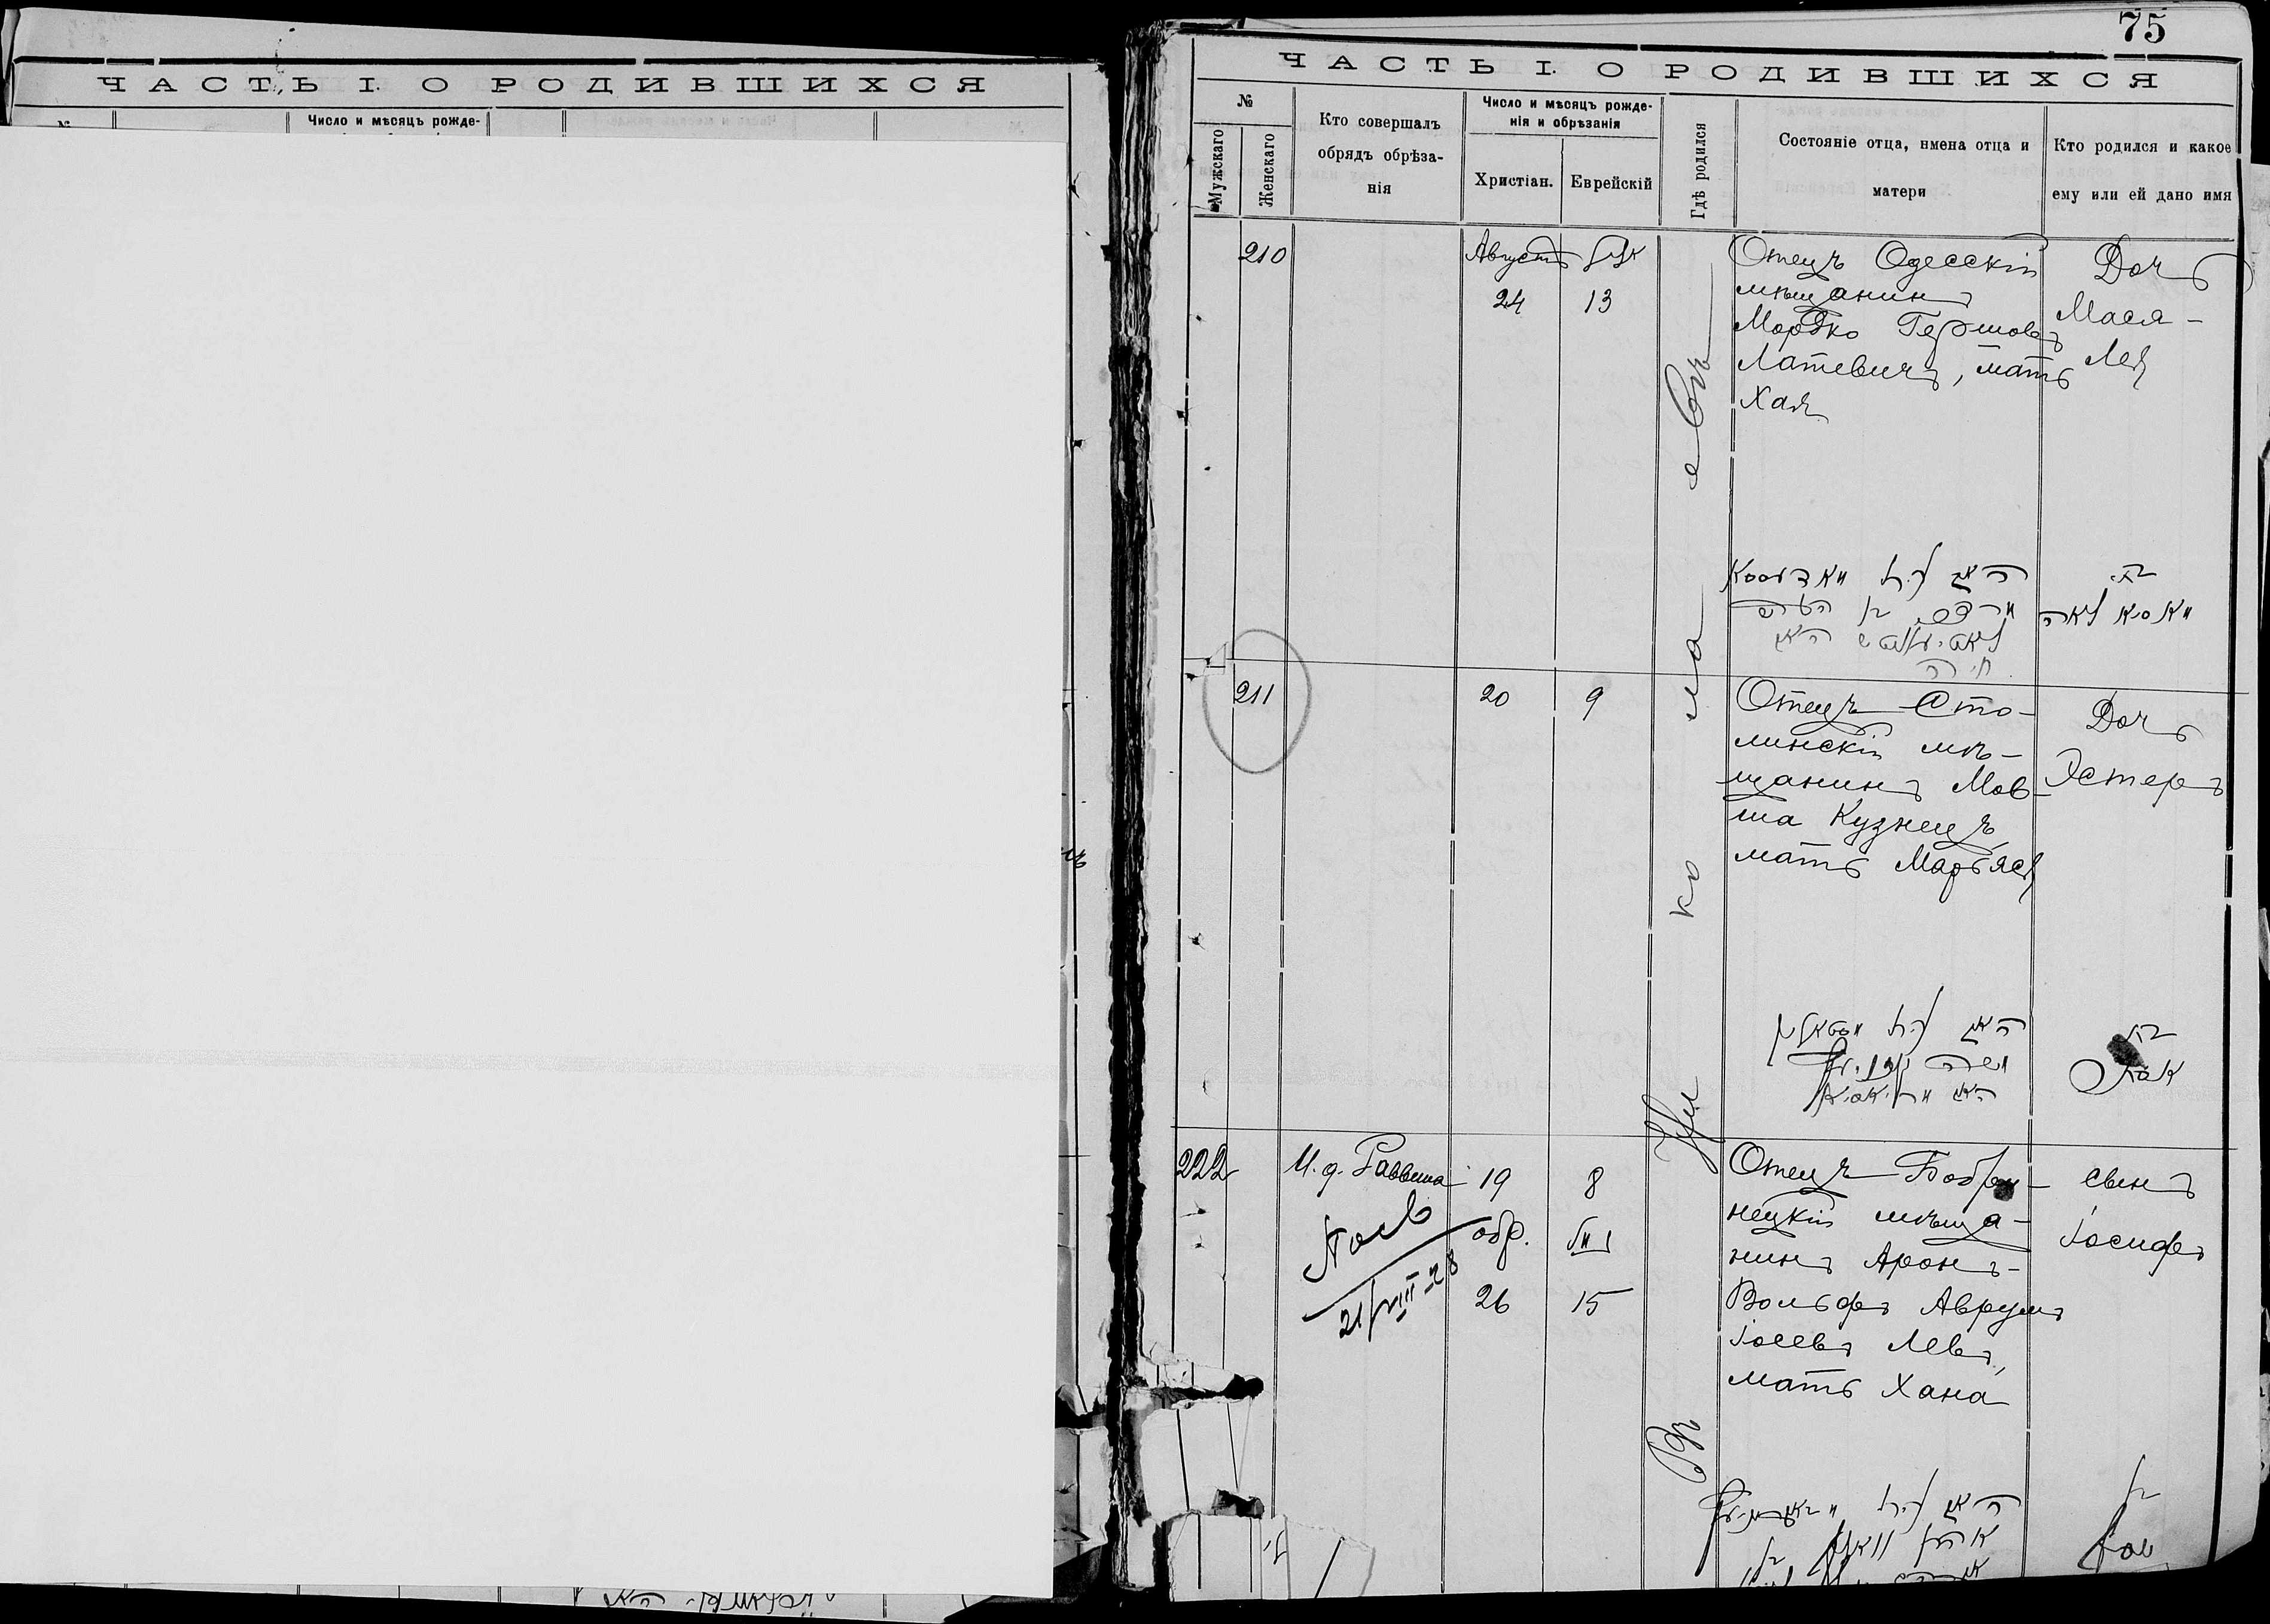 ЧАСТЬ I. О РОДИВШИХСЯ
Число и мѣсяцъ рожде-
75
ЧАСТЬ I. О РОДИВШИХСЯ
№
Мужскаго
Женскаго
Кто совершалъ
обрядъ обрѣза-
нія
Число и мѣсяцъ рожде-
нія и обрѣзанія
Христіан.
Еврейскій
Гдѣ родился
Состояніе отца, имена отца и
матери
Кто родился и какое
ему или ей дано имя
Въ
Николаевѣ
210
Августъ
24
13
Отецъ Одесскій
мѣщанинъ
Мордко Гершовъ
Латевичъ, мать
Хая
Дочь
Мася-
Лея
האב
האם
חיה
בת
מאסיא לאה
211
20
9
Отецъ Сто-
линскій мѣ-
щанинъ Мов-
ша Кузнецъ,
мать Марьяся
Дочь
Эстеръ
האב
משה
האם מריאסיא
בת
222
И. д. Раввина
21/VIII-28
19
обр.
26
8
15
Отецъ Бобри-
нецкій мѣща-
нинъ Аронъ-
Вольфъ Аврумъ
Іосевъ Левъ,
мать Хана
сынъ
Іосифъ
האב
אהרן וואלף בן
בן